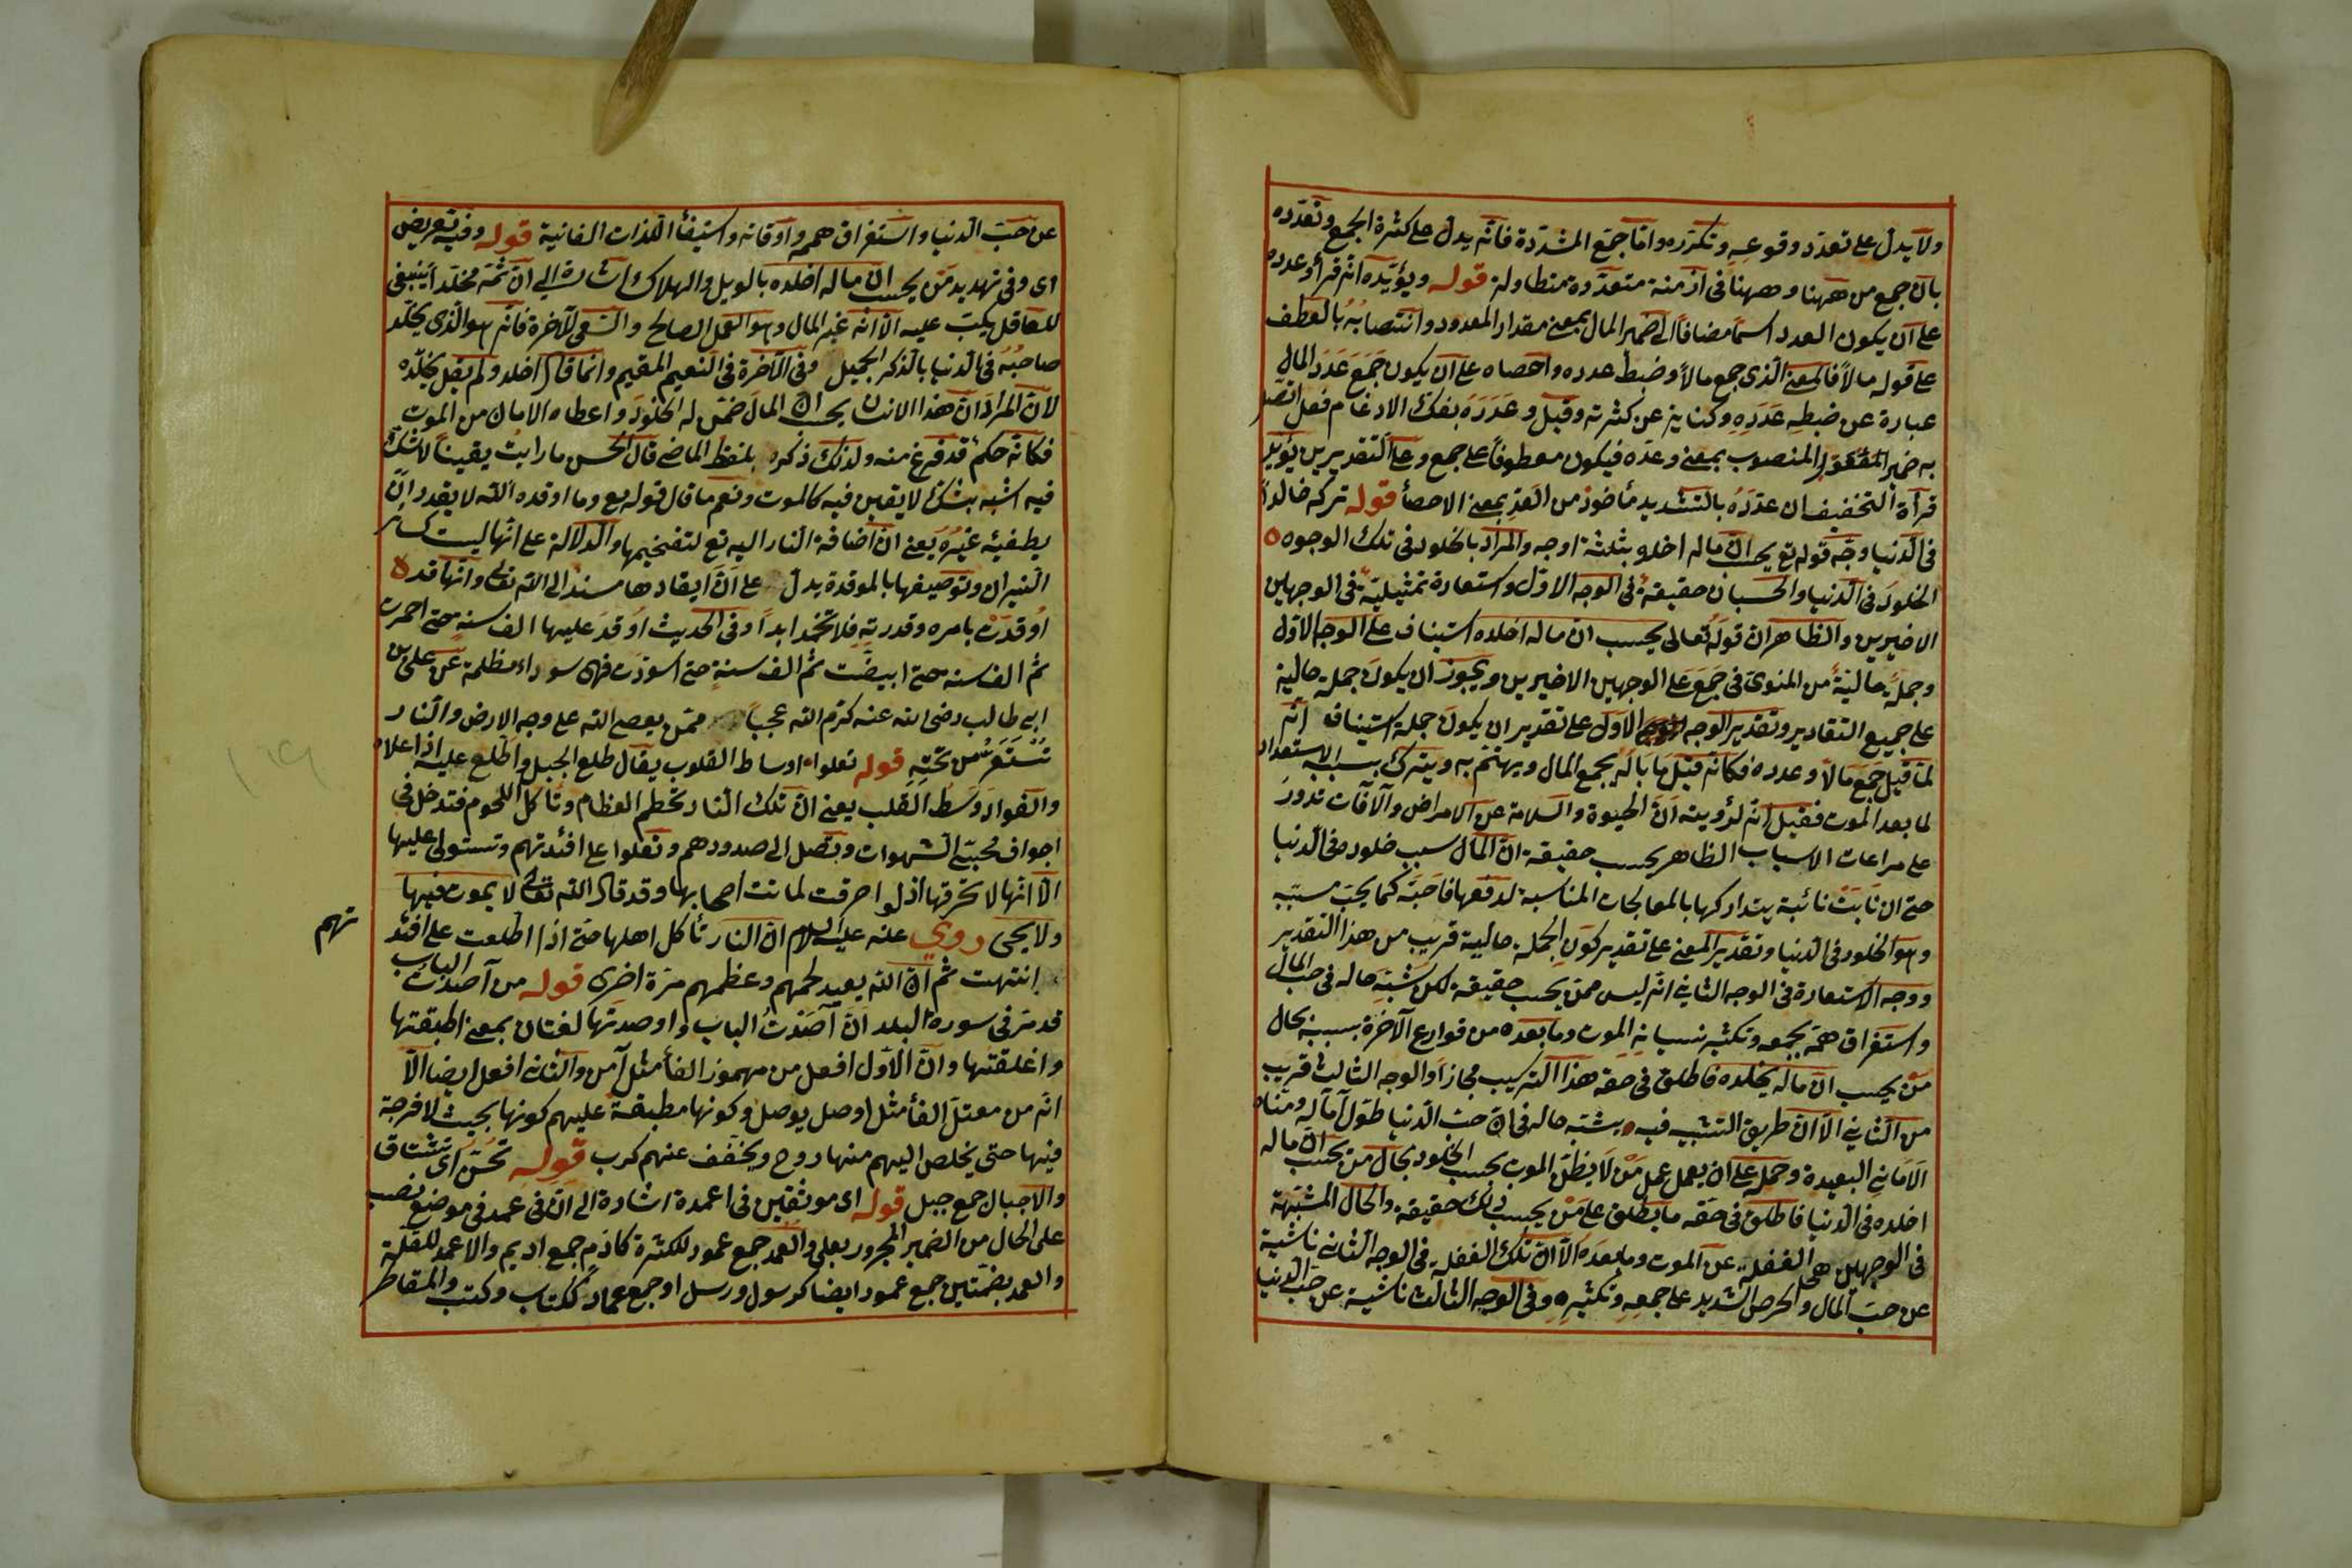 ولا يدل على تعدد وقوعه وتكرره واما جمع المشددة فانه يدل على كثرة الجمع وتعدده
بان جمع من ههنا وههنا فى ازمنة متعددة متطاولة قوله ويؤيده انه قرأ وعدده
على ان يكون العدد اسما مضافا الى ضمير المال بمعنى مقدار المعدود وانتصابه بالعطف
على قوله مالا فالمعنى الذى جمع مالا وضبط عدده واحصاه على ان يكون جمع عدد المال
عبارة عن ضبطه عدده وكناية عن كثرته وقيل وعدده بفك الادغام فعل اتصل
به ضمير المفعول المنصوب بمعنى وعده فيكون معطوفا على جمع وعلى التقديرين يؤيد
قرأة التخفيف ان عدده بالتشديد مأخوذ من العد بمعنى الاحصأ قوله تركه خالدا
فى الدنيا وجه قوله تع يحسب ان ماله اخلده بثلثة اوجه والمراد بالخلود فى تلك الوجوه
الخلود فى الدنيا والحسبان حقيقة فى الوجه الاول واستعارة تمثيلية فى الوجهين
الاخيرين والظاهر ان قوله تعالى يحسب ان ماله اخلده استيناف على الوجه الاول
وجملة حالية من المنوى فى جمع على الوجهين الاخيرين ويجوز ان يكون جملة حالية
على جميع التقادير وتقدير الوجه الاول على تقدير ان يكون جملة استيناف انه
لما قيل جمع مالا وعدده فكانه قيل ما باله يجمع المال ويهتم به ويترك بسببه الاستعداد
لما بعد الموت فقيل انه لرؤيته ان الحيوة والسلامة عن الامراض والآفات تدور
على مراعات الاسباب الظاهر يحسب حقيقة ان المال سبب خلوده فى الدنيا
حتى ان نابت نائبة يتداركها بالمعالجات المناسبة لدفعها فاحبه كما يحب مسببه
وهو الخلود فى الدنيا وتقدير المعنى على تقدير كون الجملة حالية قريب من هذا التقدير
ووجه الاستعارة فى الوجه الثانى انه ليس ممن يحسب حقيقة لكن شبه حاله فى حب المال
واستغراق همه بجمعه وتكثيره نسيانه الموت وما بعده من قوارع الآخرة بسببه بحال
من يحسب ان ماله يخلده فاطلق فى حقه هذا التركيب مجازا والوجه الثالث قريب
من الثانى الا ان طريق التشبيه فيه يشبه حاله فى ان حب الدنيا طول آماله ومناه
الامانى البعيدة وحمله على ان يعمل عمل من لا يظن الموت يحسب الخلود بحال من يحسب ان ماله
اخلده فى الدنيا فاطلق فى حقه ما يطلق على من يحسب ذلك حقيقة والحال المشبهة
فى الوجهين هى الغفلة عن الموت وما بعده الا ان تلك الغفلة فى الوجه الثانى ناشية
عن حب المال والحرص الشديد على جمعه وتكثيره وفى الوجه الثالث ناشية عن حب الدنيا
عن حب الدنيا واستغراق هممه واوقاته واستيفأ اللذات الفانية قوله وفيه تعريض
اى وفى تهديد من يحسب ان ماله اخلده بالويل والهلاك اشارة الى ان ثمة مخلدا ينبغى
للعاقل يكب عليه الا انه غير المال وهو العمل الصالح والسعى للآخرة فانه هو الذى يخلد
صاحبه فى الدنيا بالذكر الجميل وفى الآخرة فى النعيم المقيم وانما قال اخلد ولم يقل يخلده
لان المراد ان هذا الانسان يحسب ان المال ضمن له الخلود واعطاه الامان من الموت
فكانه حكم قد فرغ منه ولذلك ذكره بلفظ الماضى قال الحسن ما رايت يقينا لا شك
فيه اشبه بشك لا يقين فيه كالموت ونعم ما قال قوله يع وما اوقده الله لا يقدر ان
يطفيه غيره يعنى ان اضافة النار اليه تع لتفخيمها والدلالة على انها ليست كسائر
النيران وتوصيفها بالموقدة يدل على ان ايقادها مسند الى الله تعالى وانها قده
اوقدت بامره وقدرته فلا تخمد ابدا وفى الحديث اوقد عليها الف سنة حتى احمرت
ثم الف سنة حتى ابيضت ثم الف سنة حتى اسودت فهى سوداء مظلمة عن على بن
ابى طالب رضى الله عنه كرم الله عجبا ممن يعصى الله على وجه الارض والنار
تستعر من تحته قوله تعلوا اوساط القلوب يقال طلع الجبل واطلع عليه اذا علاه
والفواد وسط القلب يعنى ان تلك النار تحطم العظام وتأكل اللحوم فتدخل فى
اجواف محبى الشهوات وتصل الى صدورهم وتعلوا على افئدتهم وتستولى عليها
الا انها لا تحرقها اذ لو احرقت لماتت اصحابها وقد قال الله تعالى لا يموت فيها
ولا يحيى روي عنه عليه السلام ان النار تأكل اهلها حتى اذا اطلعت على افئد
تهم
انتهت ثم ان الله يعيد لحمهم وعظمهم مرة اخرى قوله من آصدت الباب
قد مر فى سورة البلد ان آصدت الباب واوصدتها لغتان بمعنى اطبقتها
واغلقتها وان الاول افعل من مهموز الفأ مثل آمن والثانى افعل ايضا الا
انه من معتل الفأ مثل اوصل يوصل وكونها مطبقة عليهم كونها بحيث لا فرجة
فيها حتى يخلص اليهم منها روح ويخفف عنهم كرب قوله تحن اى تشتاق
والاجبال جمع جبل قوله اى موثقين فى اعمدة اشارة الى ان فى عمد فى موضع نصب
على الحال من الضمير المجرور بعلى والعمد جمع عمود للكثرة كادم جمع اديم والاعمد للقلة
والعمد بضمتين جمع عمود ايضا كرسول ورسل او جمع عماد ككتاب وكتب والمقاطر